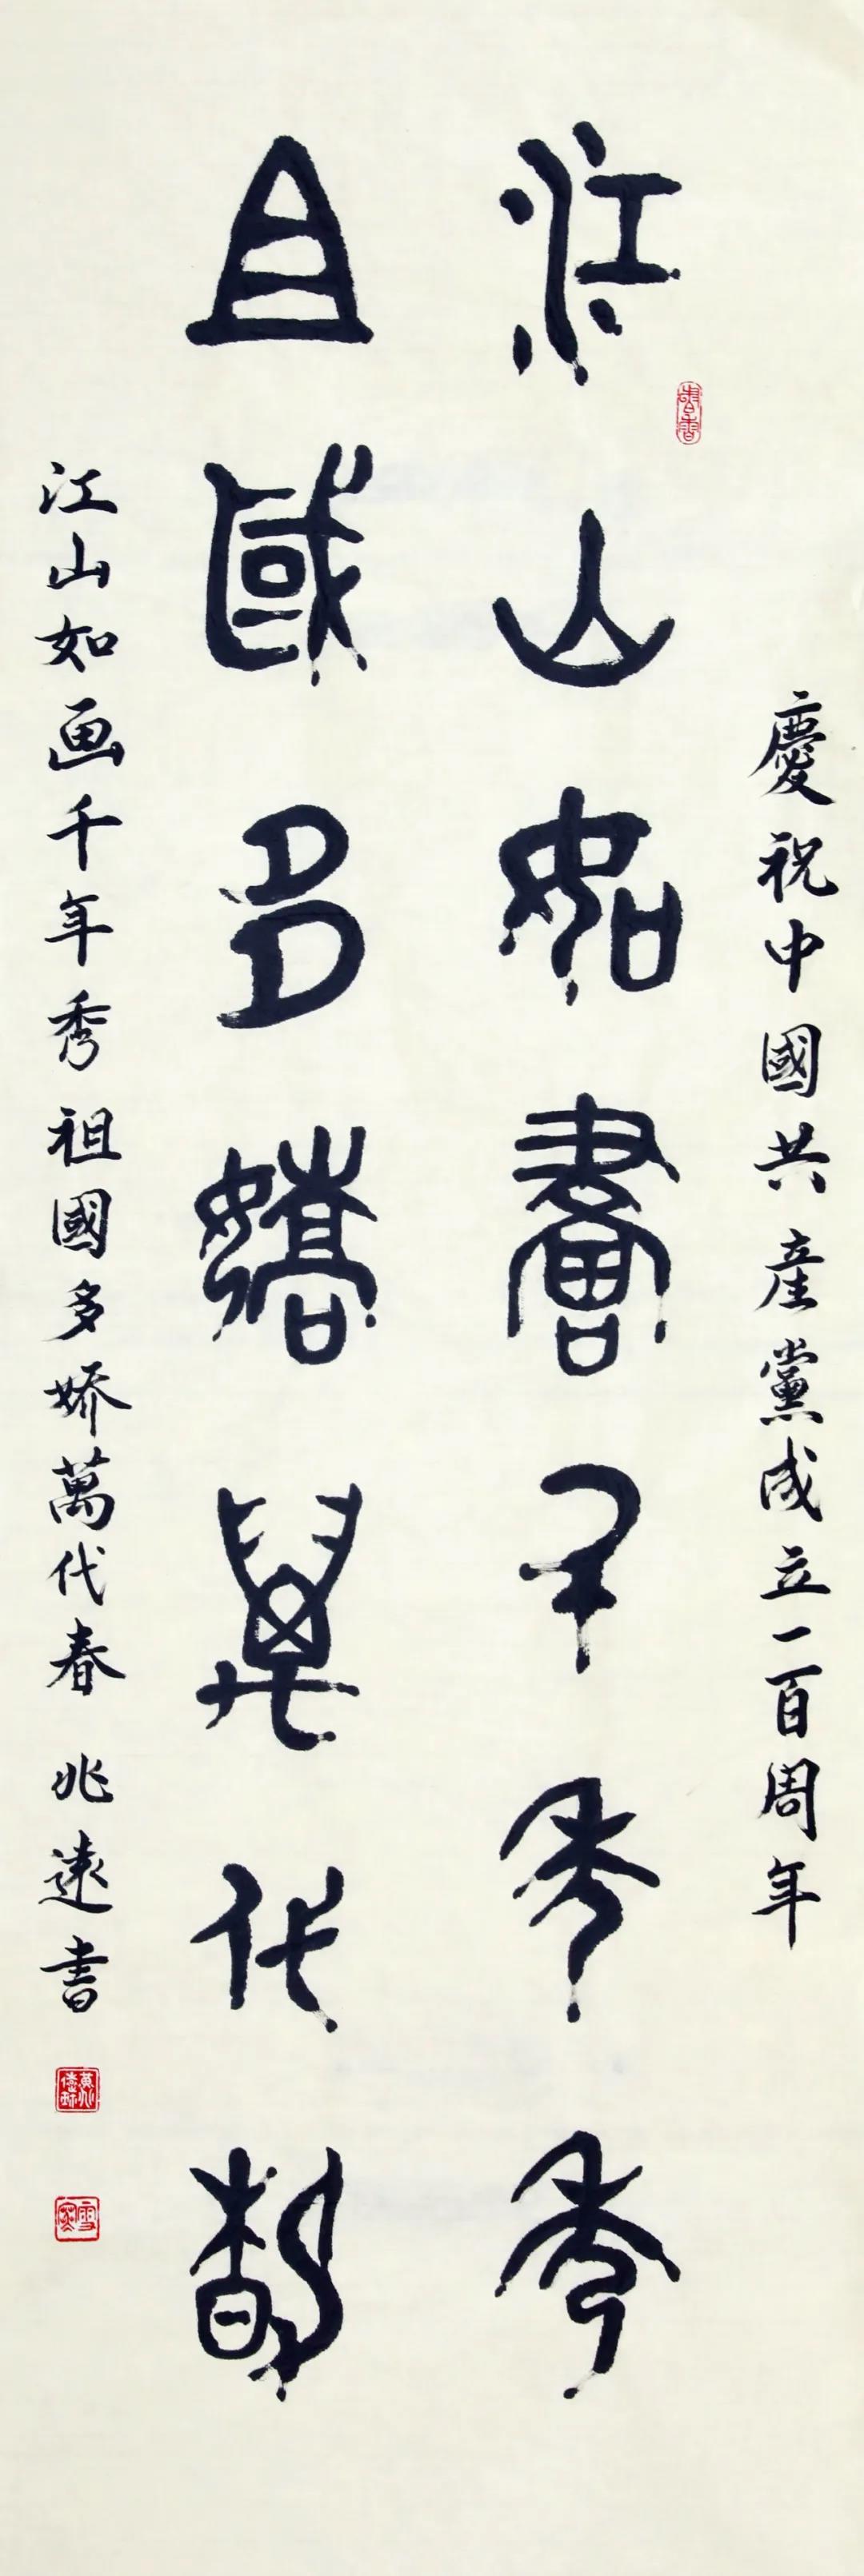 慶祝中國共產黨成立一百周年
江山如畫千年秀
且國多嬌萬代春
江山如画千年秀祖國多娇萬代春 兆遠書